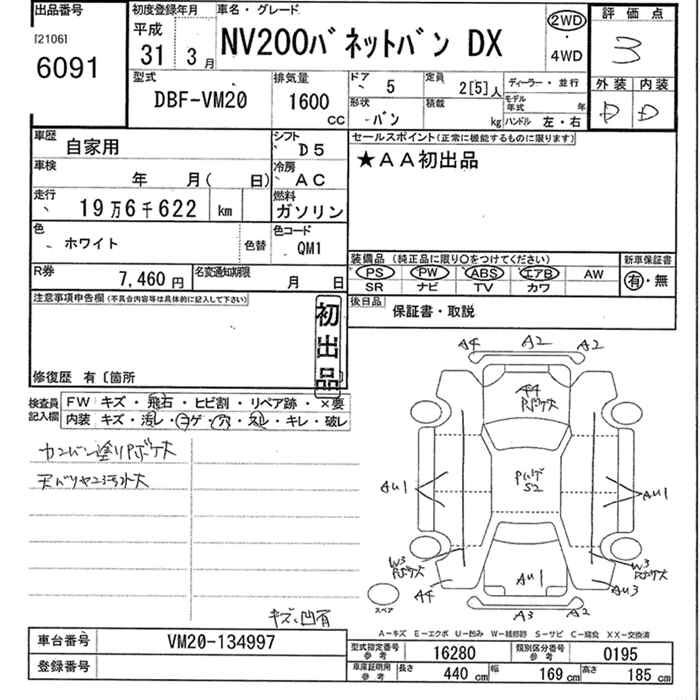 出品番号
[2106]
6091
初度登録年月
平成
31年 3月
車名・グレード
NV200バネットバン DX
2WD
4WD
評価点
3
外装 内装
D D
型式
DBF-VM20
排気量
1600
CC
ドア
5
形状
バン
定員
2[5]人
積載
kg
ディーラー・並行
モデル年式 年
ハンドル 左・右
車歴
自家用
シフト
D5
車検
年 月( 日)
冷房
AC
走行
19万6千622 km
燃料
ガソリン
色
ホワイト
色替
色コード
QM1
R券
7,460円
名変通知期限
月 日
セールスポイント(正常に機能するものに限ります)
★AA初出品
装備品(純正品に限り○をつけてください)
PS PW ABS エアB AW
SR ナビ TV カワ
新車保証書
有・無
後日品
保証書・取説
注意事項申告欄(不具合内容等は具体的に記入して下さい)
初出品
修復歴 有〔箇所
検査員記入欄
FW キズ・飛石・ヒビ割・リペア跡・×要
内装 キズ・汚レ・コゲ・穴・スレ・キレ・破レ
カンバン塗りPボケ大
キズ、凹有
A4 A2 A2
A4
Pボケ大
S2
AU1 AU1
W3 W3
Pボケ大 Pボケ大
A4 AU1 AU3
A3 A2
スペア
A-キズ E-エクボ U-凹み W-補修跡 S-サビ C-腐食 XX-交換済
車台番号
VM20-134997
登録番号
型式指定番号
参考
16280
類別区分番号
参考
0195
車庫証明用
参考
長さ 440 cm 幅 169 cm 高さ 185 cm